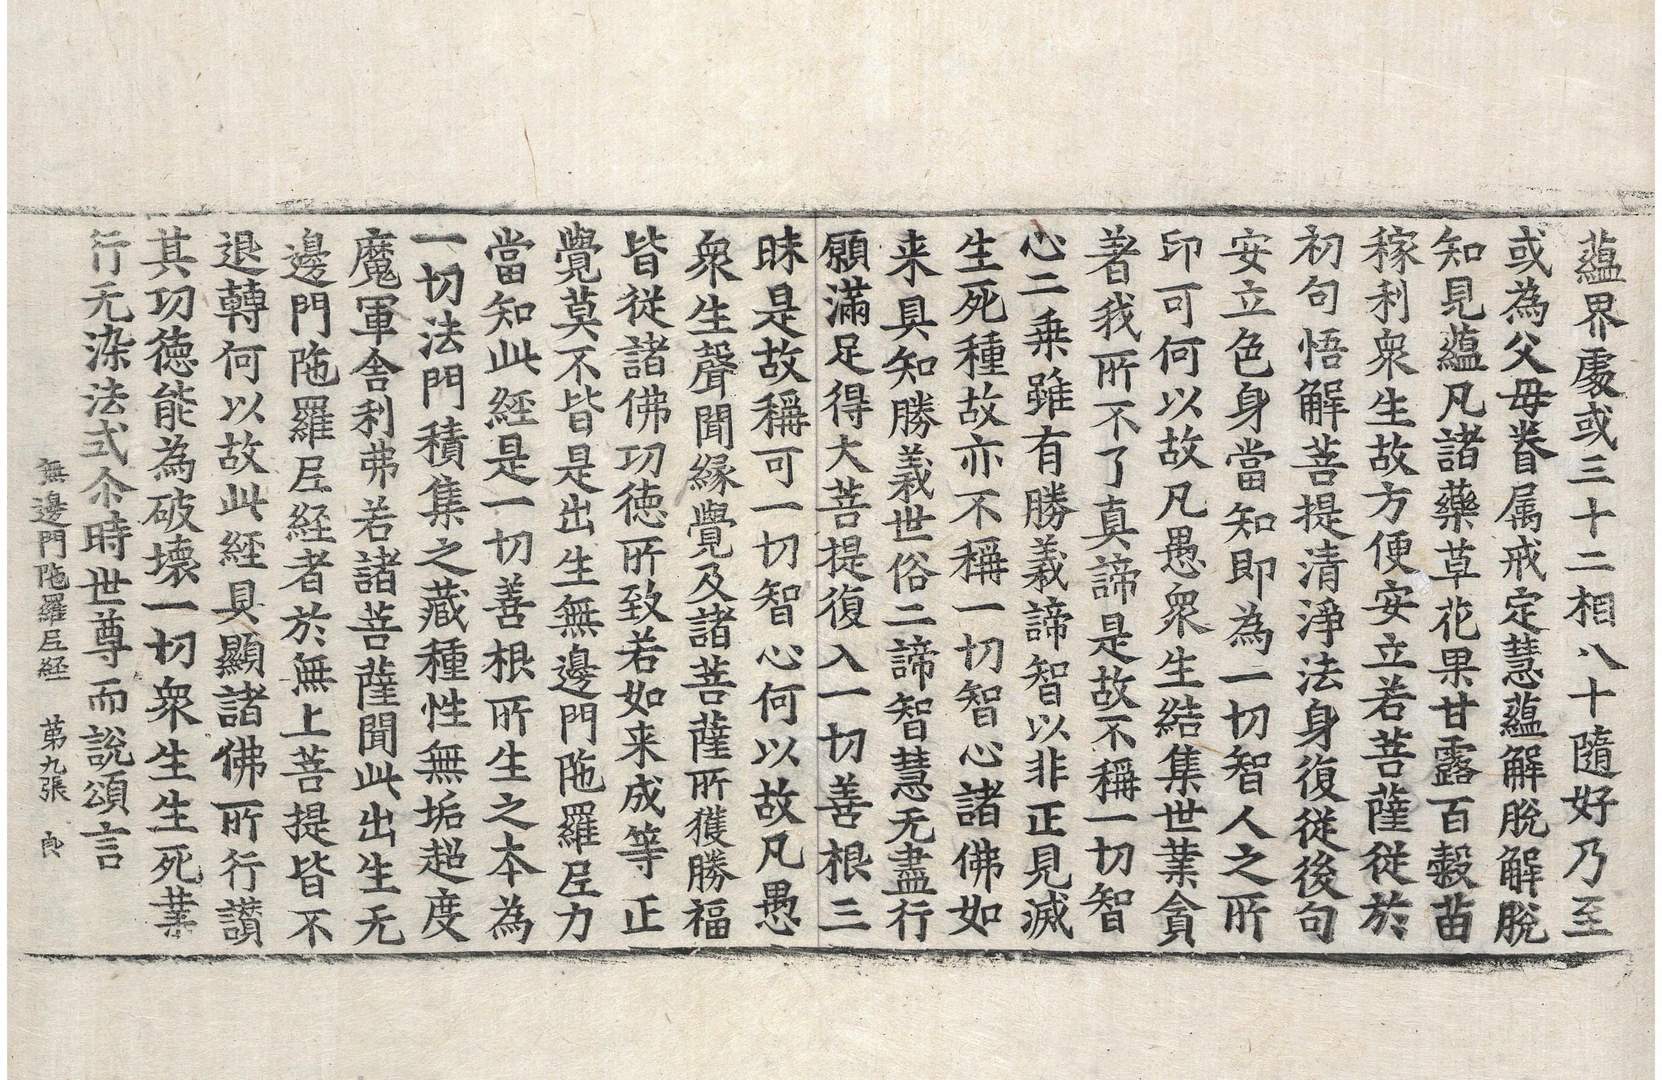 蘊界處或三十二相八十隨好乃至
或為父母眷属戒定慧蘊解脫解脫
知見蘊凡諸藥草花果甘露百穀苗
稼利衆生故方便安立若菩薩從於
初句悟解菩提清淨法身復從後句
安立色身當知即為一切智人之所
印可何以故凡愚衆生結集世業貪
著我所不了真諦是故不稱一切智
心二乗雖有勝義諦智以非正見滅
生死種故亦不稱一切智心諸佛如
来具知勝義世俗二諦智慧无盡行
願滿足得大菩提復入一切善根三
昧是故稱可一切智心何以故凡愚
衆生聲聞緣覺及諸菩薩所獲勝福
皆從諸佛功德所致若如来成等正
覺莫不皆是出生無邊門陁羅尼力
當知此經是一切善根所生之本為
一切法門積集之藏種性無垢超度
魔軍舍利弗若諸菩薩聞此出生无
邊門陁羅尼経者於無上菩提皆不
退轉何以故此經具顯諸佛所行讃
其功德能為破壞一切衆生生死業
行无染法式尒時世尊而說頌言
無邊門陁羅尼経 第九張 良